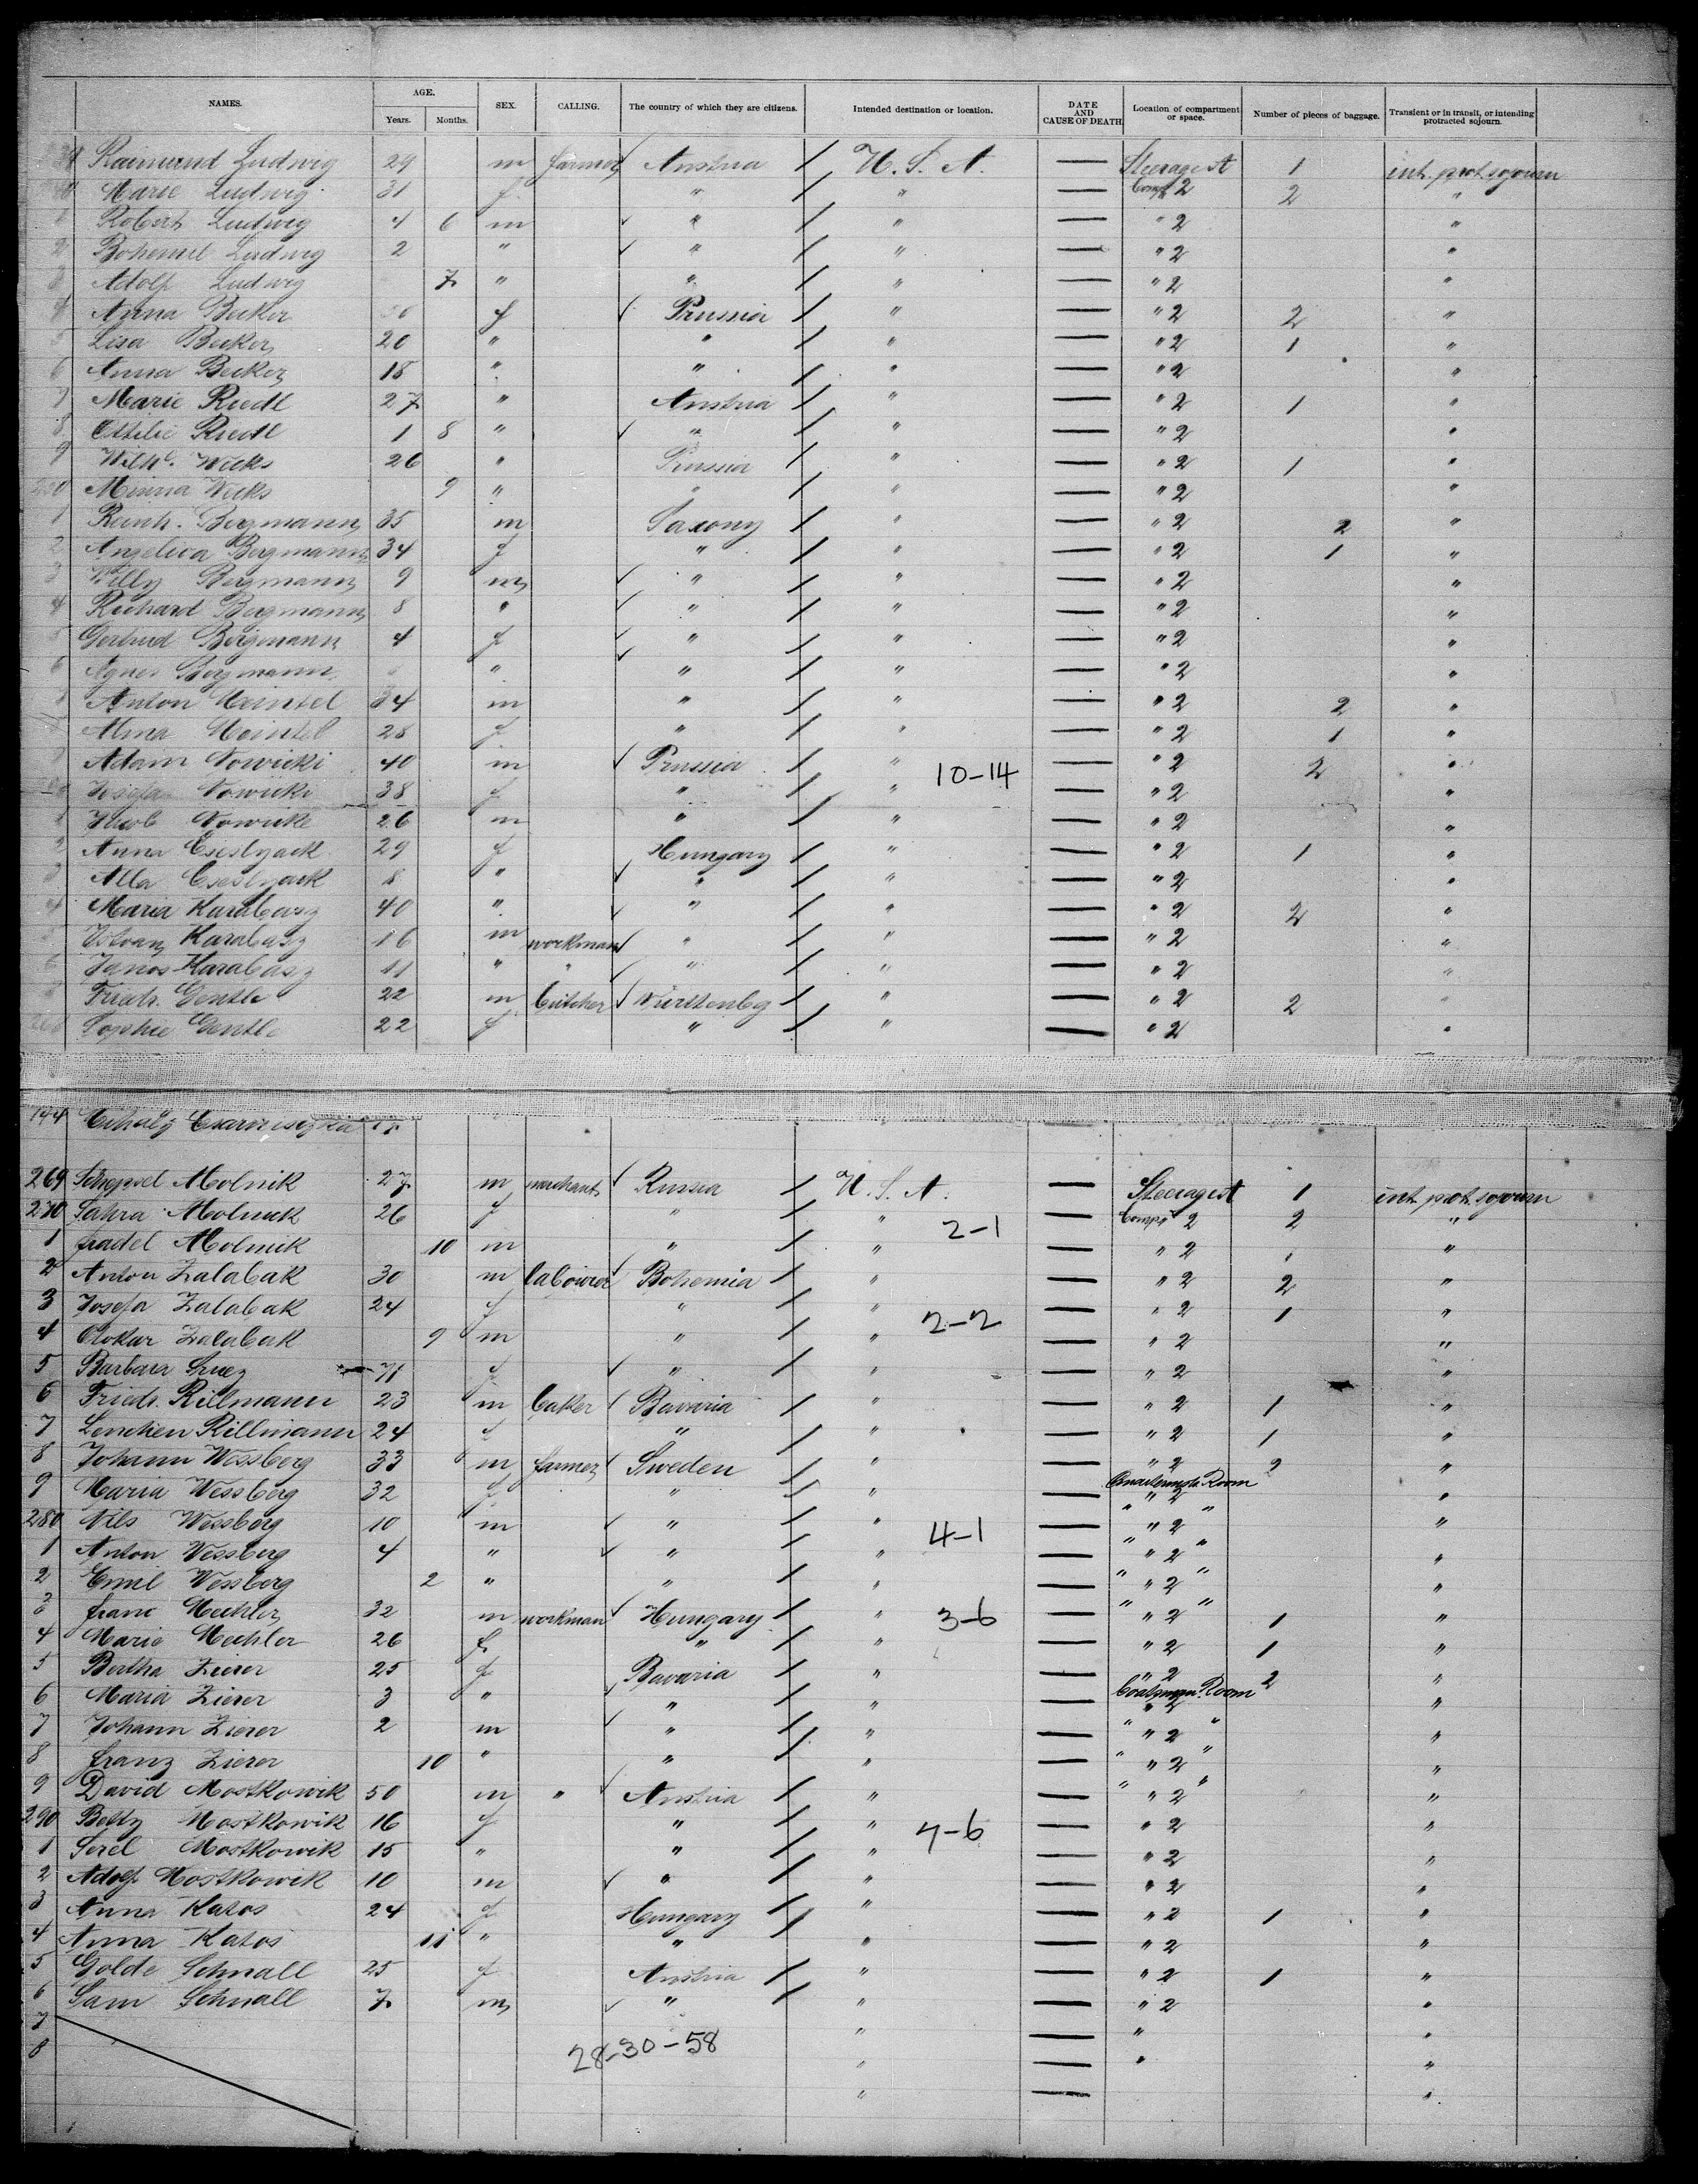 NAMES. AGE. Years. Months. SEX. CALLING. The country of which they are citizens. Intended destination or location. DATE AND CAUSE OF DEATH Location of compartment or space. Number of pieces of baggage. Transient or in transit, or intending protracted sojourn.
Raimund Ludwig 29 m farmer Austria / U. S. A. — Steerage 1 int. prot. sojourn
Marie Ludwig 31 f " / " — Compt 2 2 "
1 Robert Ludwig 4 6 m ✓ " / " — " 2 "
2 Bohumil Ludwig 2 " ✓ " / " — " 2 "
3 Adolf Ludwig 7 " " / " — " 2 "
4 Anna Becker f ✓ Prussia / " — " 2 2 "
5 Lisa Becker 20 " " / " — " 2 1 "
6 Anna Becker 18 " " / " — " 2 "
7 Marie Riedl 27 " Austria / " — " 2 1 "
8 Ottilie Riedl 1 8 " ✓ " / " — " 2 "
9 Wilh. Wicks 26 " Prussia / " — " 2 1 "
Minna Wicks 9 " " / " — " 2 "
1 Reinh. Bergmann 35 m Saxony / " — " 2 2 "
2 Angelica Bergmann 34 f " / " — " 2 1 "
3 Willy Bergmann 9 m ✓ " / " — " 2 "
4 Richard Bergmann 8 " ✓ " / " — " 2 "
5 Gertrud Bergmann 4 f ✓ " / " — " 2 "
6 Agnes Bergmann " ✓ " / " — " 2 "
Anton Meintel 34 m " / " — " 2 2 "
Alma Meintel 28 f " / " — " 2 1 "
Adam Nowicki 40 m ✓ Prussia / " 10-14 — " 2 2 "
Josefa Nowicki 38 f " / " — " 2 "
Nowicki 26 m " / " — " 2 "
2 Anna 29 f Hungary / " — " 2 1 "
3 8 " ✓ " / " — " 2 "
4 Maria Karabasz 40 " ✓ " / " — " 2 2 "
Istvan Karabasz 16 m workman ✓ " / " — " 2 "
6 Janos Karabasz 11 " " ✓ " / " — " 2 "
Friedr. Gentle 22 m butcher ✓ Würtenbg / " — " 2 2 "
Sophie Gentle 22 f " / " — " 2 "
144 Mihaly
269 Schepsel Molnik 27 m merchant ✓ Russia / U. S. A. — Steerage 1 int. prot. sojourn
270 Sahra Molnik 26 f " / " 2-1 — Compt 2 2 "
1 Fradel Molnik 10 m " / " — " 2 "
2 Anton Zalabak 30 m labourer ✓ Bohemia / " — " 2 2 "
3 Josefa Zalabak 24 f " / " 2-2 — " 2 1 "
4 Otokar Zalabak 9 m " / " — " 2 "
5 Barbara 71 f ✓ " / " — " 2 "
6 Friedr. Rillmann 23 m baker ✓ Bavaria / " — " 2 1 "
7 Lenchen Rillmann 24 f " / " — " 2 1 "
8 Johann Wessberg 33 m farmer ✓ Sweden / " — " 2 2 "
9 Maria Wessberg 32 f " / " — Room " 2 "
280 Nils Wessberg 10 m ✓ " / " 4-1 — " " 2 " "
1 Anton Wessberg 4 " ✓ " / " — " " 2 " "
2 Emil Wessberg 2 " " / " — " " 2 " "
3 Franc Mechler 32 m workman ✓ Hungary / " 3-6 — " " 2 " 1 "
4 Marie Mechler 26 f " / " — " 2 1 "
5 Bertha Zierer 25 f Bavaria / " — " 2 2 "
6 Maria Zierer 3 " ✓ " / " — Room " 2 "
7 Johann Zierer 2 m ✓ " / " — " " 2 " "
8 Franz Zierer 10 " " / " — " " 2 " "
9 David Mostkowik 50 m " ✓ Austria / " — " " 2 " "
290 Betty Mostkowik 16 f " / " 7-6 — " 2 "
1 Serel Mostkowik 15 " " / " — " 2 "
2 Adolf Mostkowik 10 m ✓ " / " — " 2 "
3 Anna Katos 24 f Hungary / " — " 2 1 "
4 Anna Katos 11 " " / " — " 2 "
5 Golde Schnall 25 f Austria / " — " 2 1 "
6 Sam Schnall 7 m ✓ " / " — " 2 "
7 " — " "
8 28-30-58 " — " "
" — "